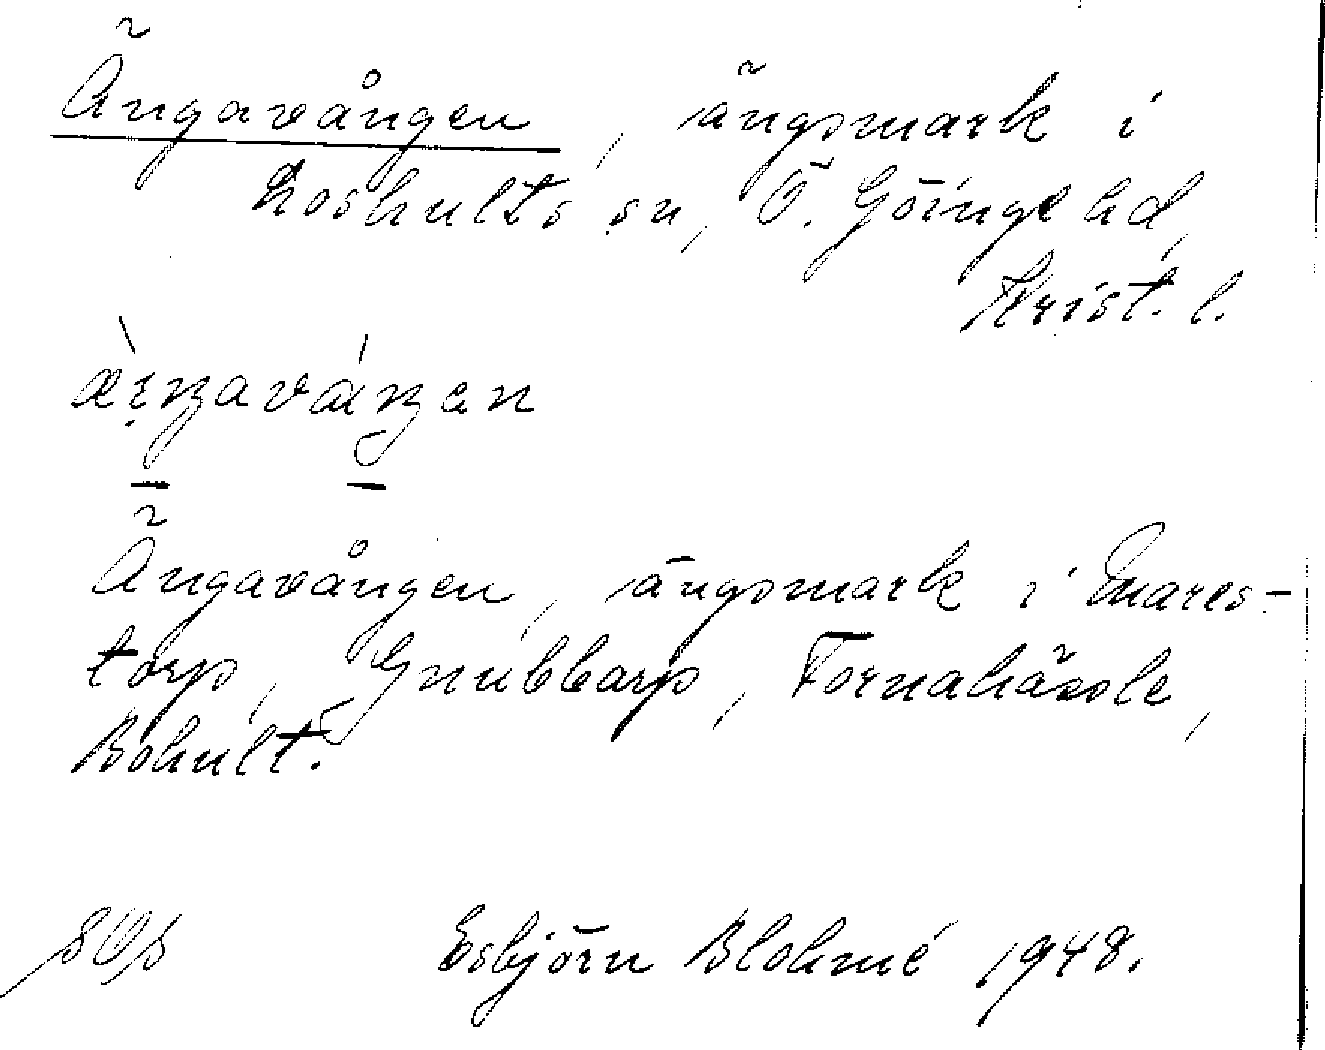 Ängavången, ängsmark i
Loshults sn, Ö. Göinge hd,
Krist. l.
Ängavången, ängsmark i Mares-
torp, Gnubbarp, Tornahässle,
Bohult.
Esbjörn Blohmé 1948.